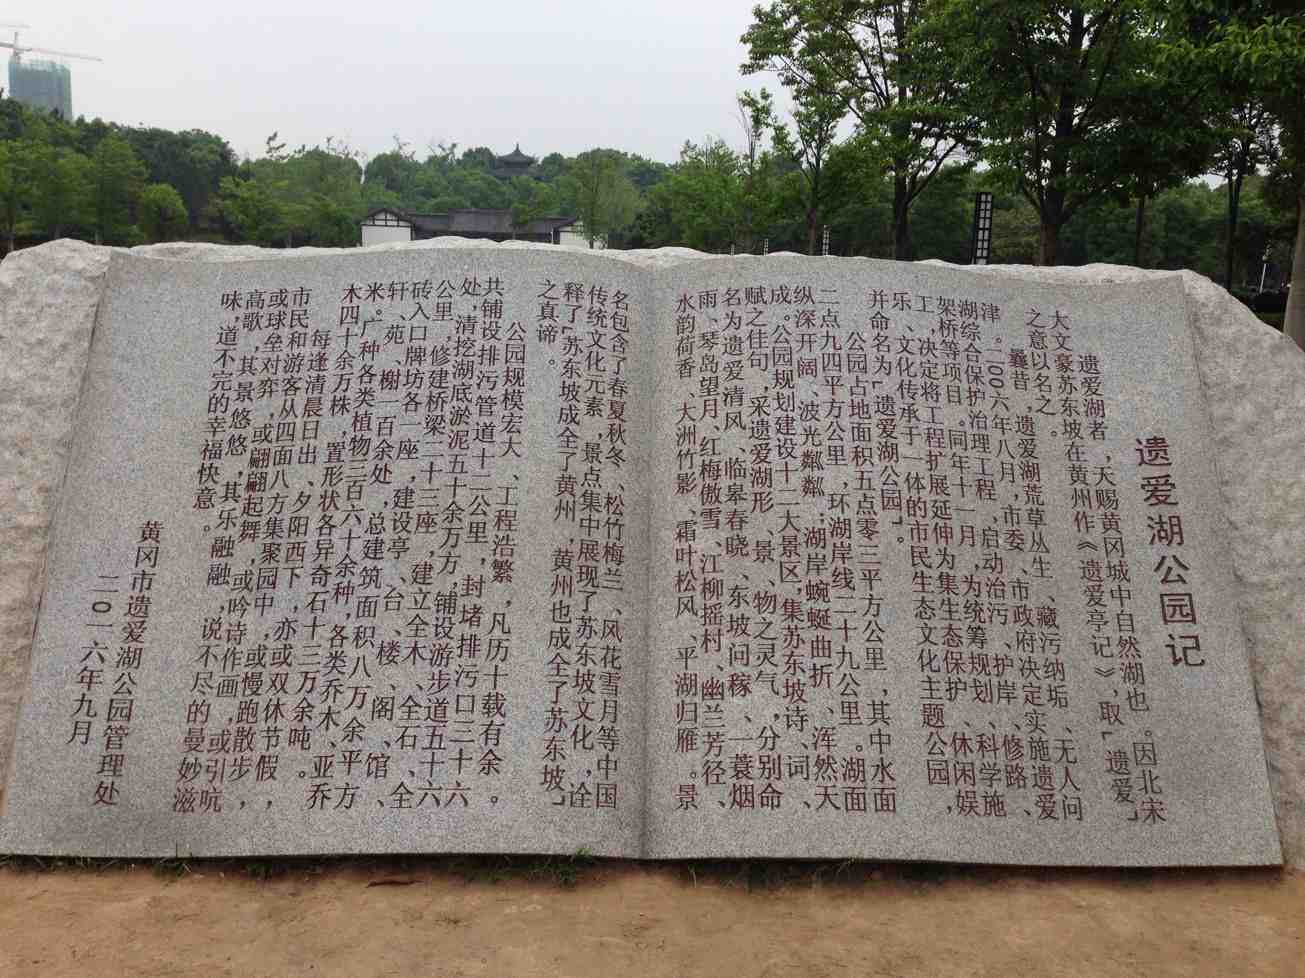 遗爱湖公园记
遗爱湖者,天赐黄冈城中自然湖也。因北宋
大文豪苏东坡在黄州作《遗爱亭记》,取「遗爱」
之意以名之。
曩昔,遗爱湖荒草丛生、藏污纳垢、无人问
津。二00六年八月,市委、市政府决定实施遗爱
湖综合保护治理工程,启动治污、护岸、修路、
架桥等项目。同年十一月,为统筹规划、科学施
工,决定将工程扩展延伸为集生态保护、休闲娱
乐、文化传承于一体的市民生态文化主题公园,
并命名为「遗爱湖公园」。
公园占地面积五点零三平方公里,其中水面
二点九四平方公里,环湖岸线二十九公里。湖面
纵深开阔、波光粼粼;湖岸蜿蜒曲折、浑然天
成。公园规划建设十二大景区,集苏东坡诗、词、
赋之佳句,采遗爱湖形、景、物之灵气,分别命
名为遗爱清风、临皋春晓、东坡问稼、一蓑烟
雨、琴岛望月、红梅傲雪、江柳摇村、幽兰芳径、
水韵荷香、大洲竹影、霜叶松风、平湖归雁。景
名包含了春夏秋冬、松竹梅兰、风花雪月等中国
传统文化元素,景点集中展现了苏东坡文化,诠
释了「苏东坡成全了黄州,黄州也成全了苏东坡」
之真谛。
公园规模宏大、工程浩繁,凡历十载有余。
共铺设排污管道十二公里,封堵排污口二十六
处,清挖湖底淤泥五十余万方,铺设游步道五十六
公里,修建桥梁二十三座,建立全木、全石、全
砖入口牌坊各一座,建设亭、台、楼、阁、馆、
轩、苑、榭一百余处,总建筑面积八万余平方
米。广种各类植物三百六十余种,各类乔木、亚乔
木四十余万株,置形状各异奇石十三万余吨。
每逢清晨日出、夕阳西下,亦或双休节假,
市民和游客从四面八方集聚园中,或慢跑散步,
或球垒对弈,或翩翩起舞,或吟诗作画,或引吭
高歌,其景悠悠,其乐融融,说不尽的曼妙滋
味,道不完的幸福快意。
黄冈市遗爱湖公园管理处
二〇一六年九月